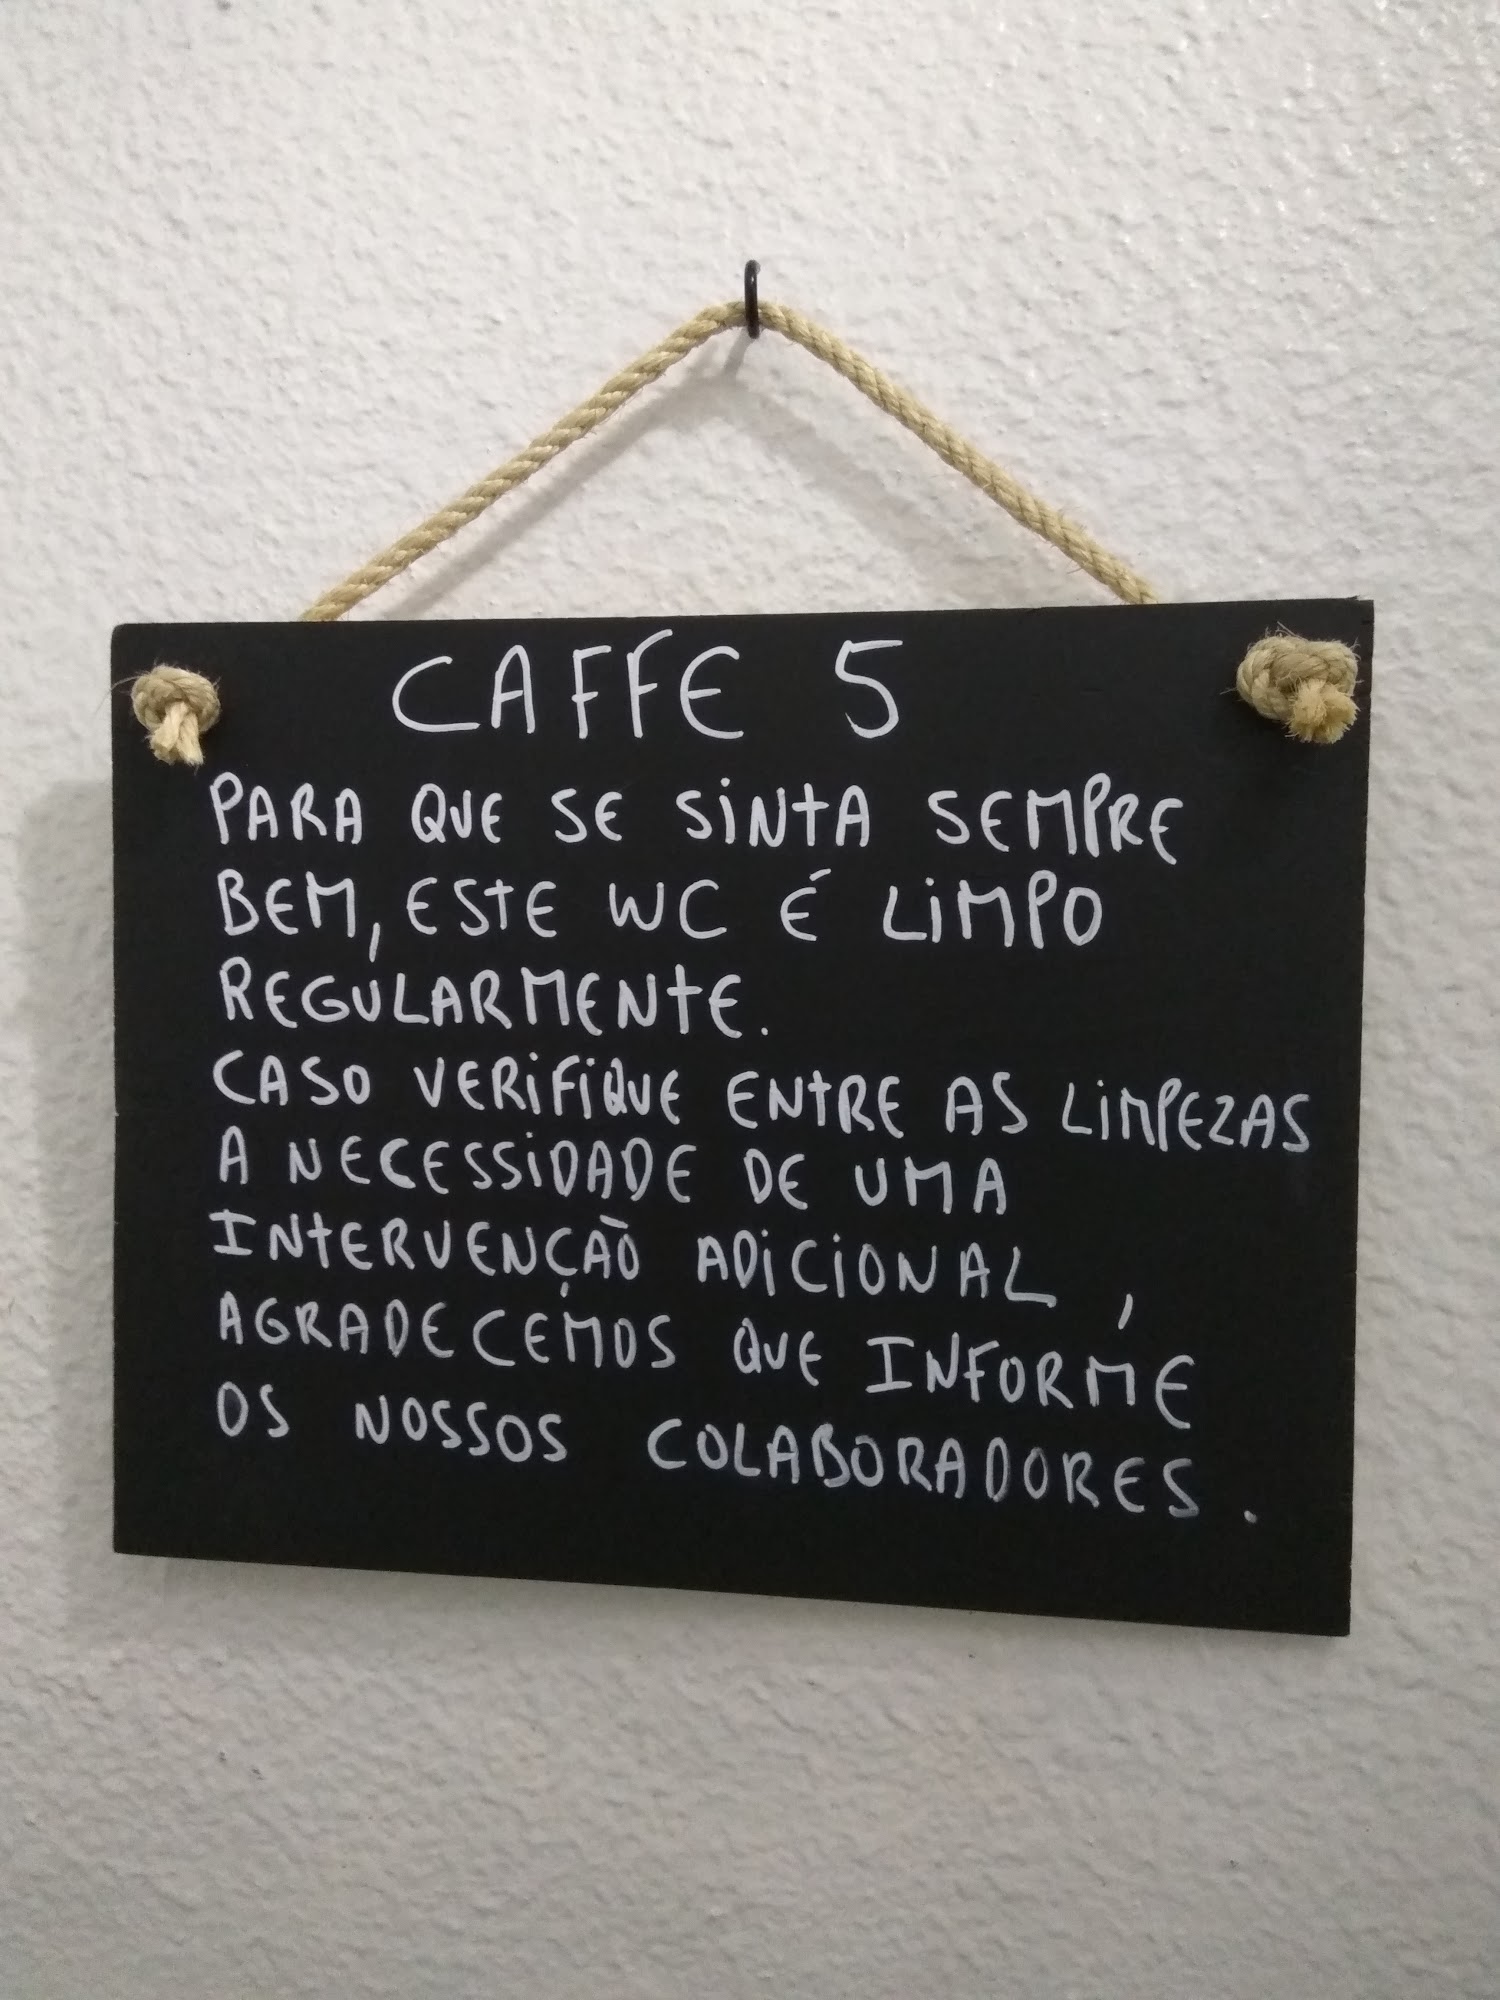 CAFFE 5
PARA QUE SE SINTA SEMPRE
BEM, ESTE WC É LIMPO
REGULARMENTE.
CASO VERIFIQUE ENTRE AS LIMPEZAS
A NECESSIDADE DE UMA
INTERVENÇÃO ADICIONAL,
AGRADECEMOS QUE INFORME
OS NOSSOS COLABORADORES.